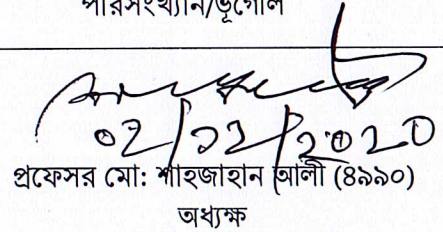 পরিসংখ্যান/ভূগোল
০২/১২/২০২০
প্রফেসর মো: শাহজাহান আলী (৪৯৯০)
অধ্যক্ষ